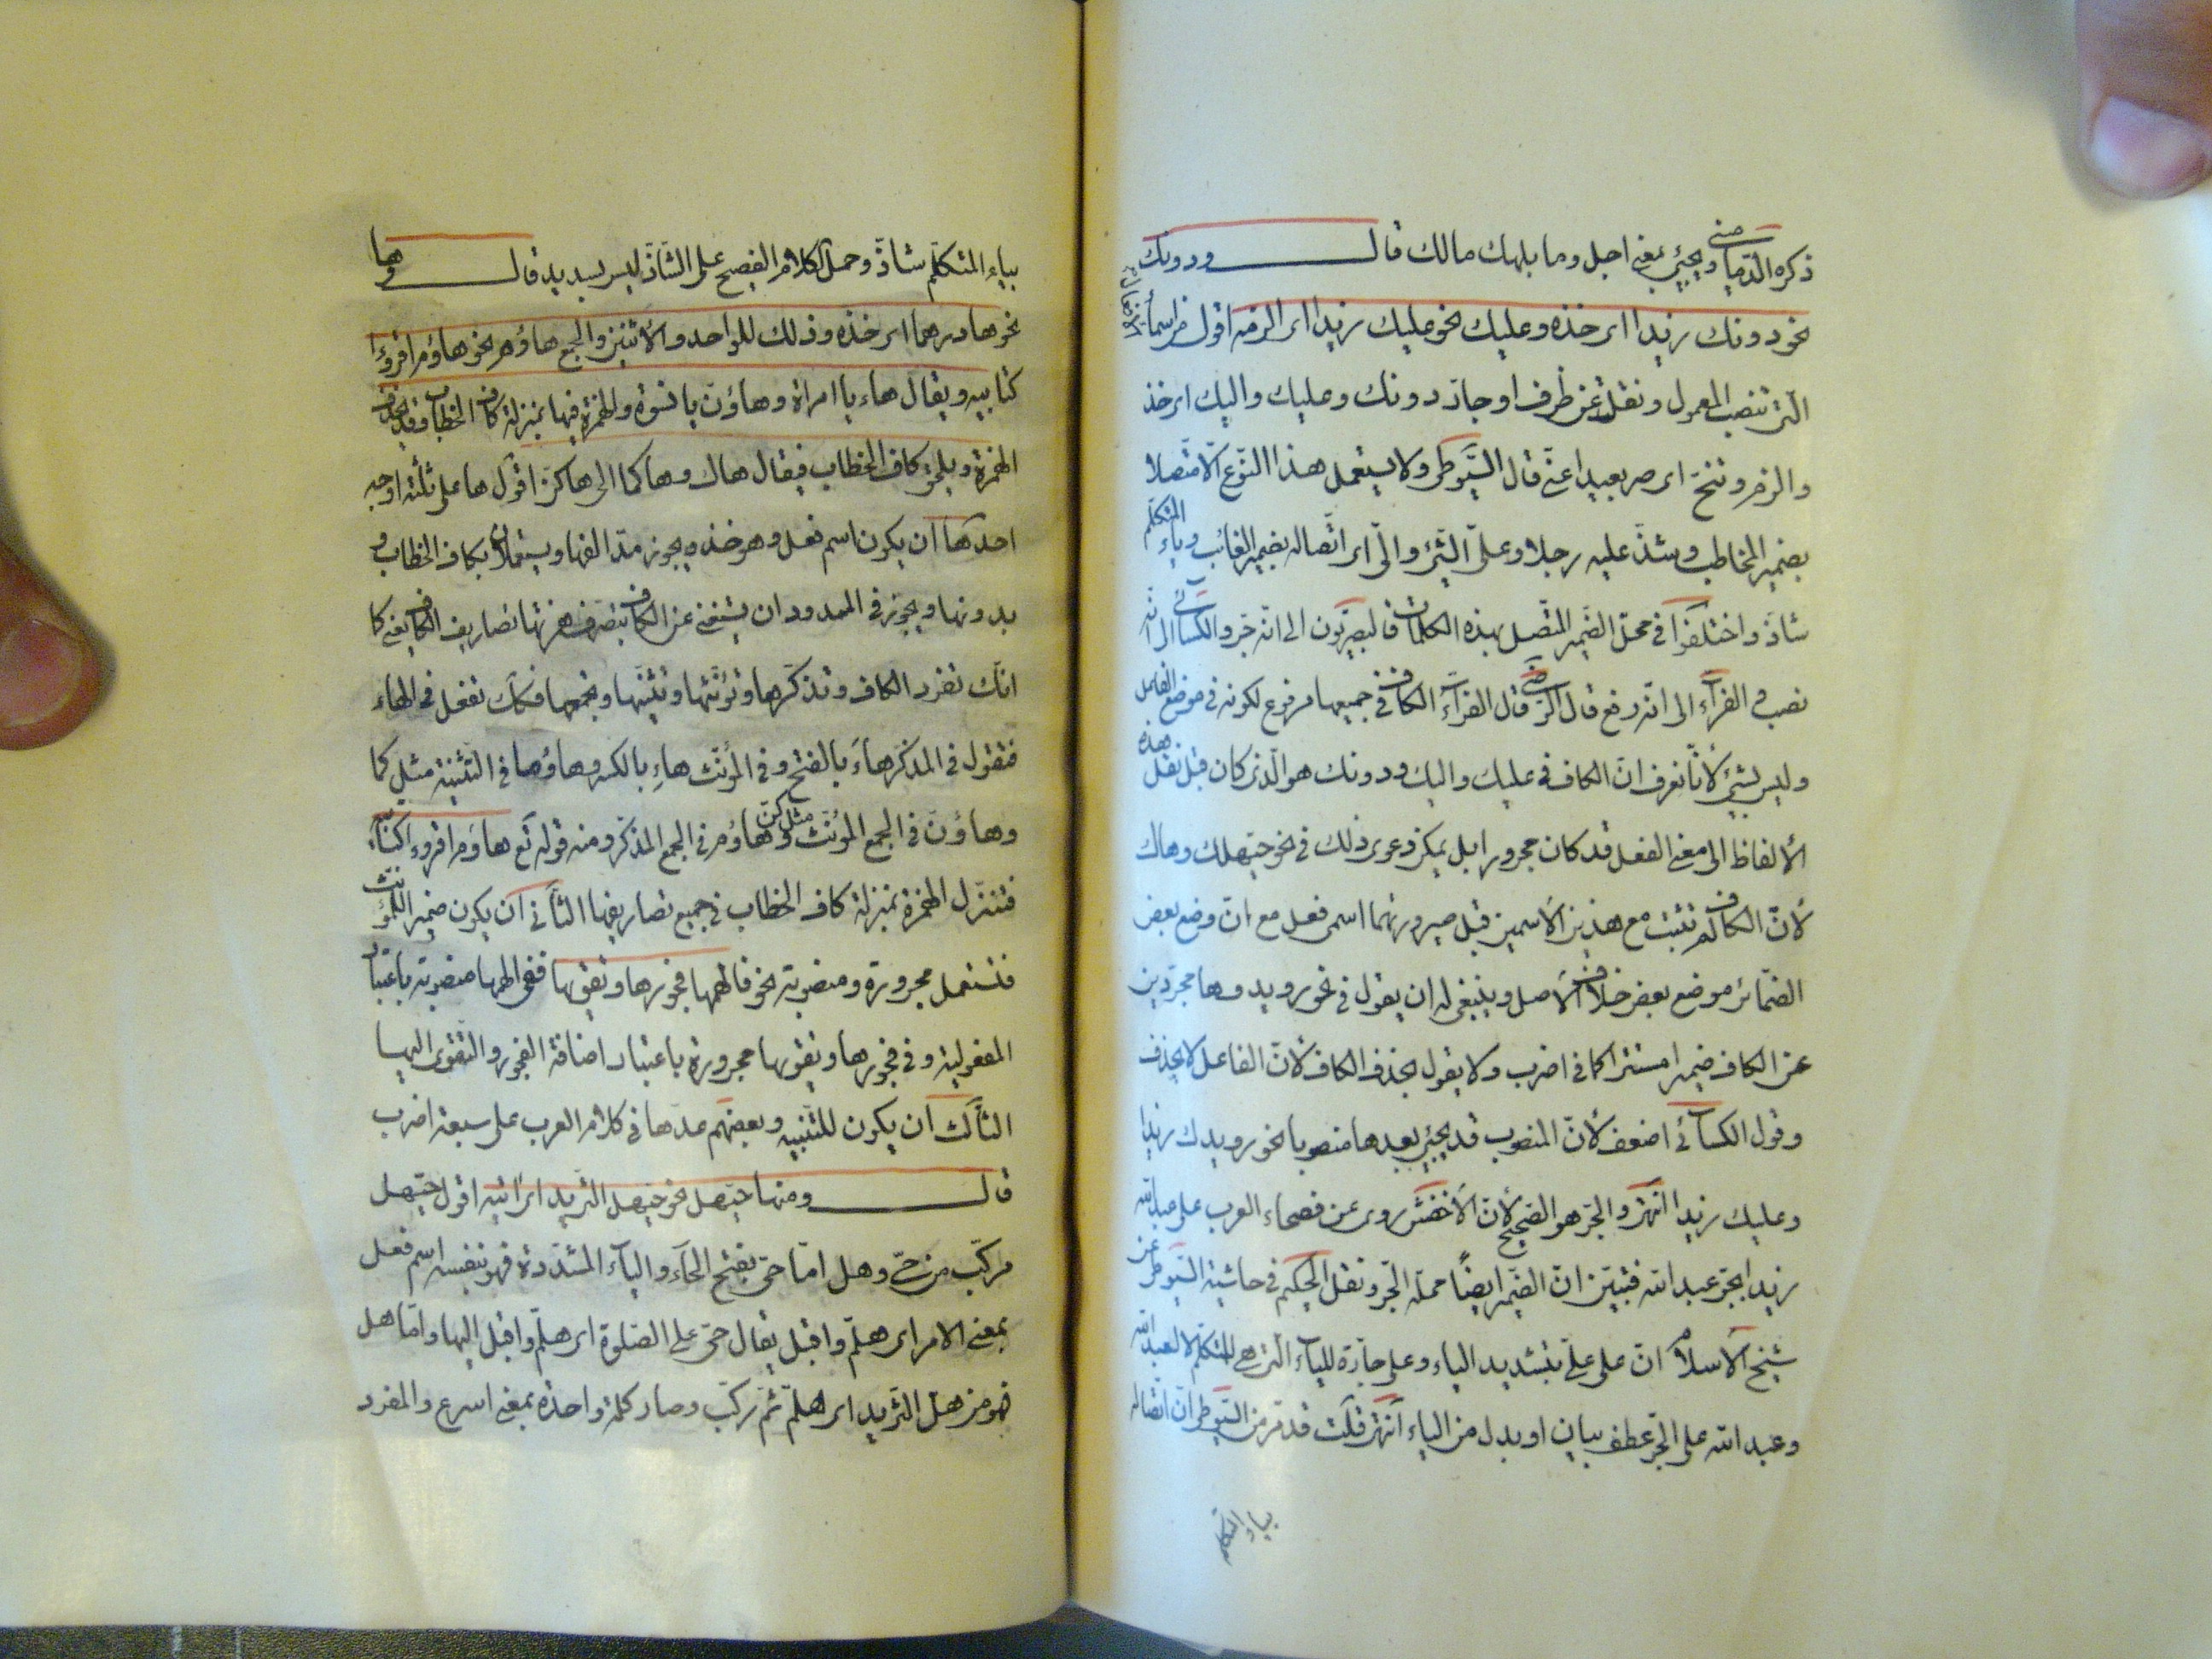 ذكره الدماميني ويجيئ بمعنى اجل وما بلهك مالك قال ودونك
نحو دونك زيدا اى خذه وعليك نحو عليك زيدا اى الزمه اقول من اسماء الافعال
التى تنصب المعمول ونقل عن ظرف او جار دونك وعليك واليك اى خذ
والزم وتنح اى صر بعيدا عنى قال السيوطى ولا يستعمل هذا النوع الا متصلا
بضمير المخاطب وشذ عليه رجلا وعلى الشئ والى اى اتصاله بضمير الغائب وياء المتكلم
شاذ واختلفوا فى محل الضمير المتصل بهذه الكلمات فالبصريون الى انه جر والكسائى الى انه
نصب والفراء الى انه رفع قال الرضى قال الفراء الكاف فى جميعها مرفوع لكونه فى موضع الفاعل
وليس بشيئ لأنا نعرف ان الكاف فى عليك واليك ودونك هو الذى كان قبل نقل هذه
الألفاظ الى معنى الفعل قد كان مجرورا بل يمكن دعوى ذلك فى نحو حيهلك وهاك
لأن الكاف لم تثبت مع هذين الأسمين قبل صيرورتهما اسمى فعل مع ان وضع بعض
الضمائر موضع بعض خلاف الأصل وينبغى له ان يقول فى نحو رويد وها مجردين
عن الكاف ضميرا مستترا كما فى اضرب ولا يقول بحذف الكاف لأن الفاعل لا يحذف
وقول الكسائى اضعف لأن المنصوب قد يجيئ بعدها منصوبا نحو رويدك زيدا
وعليك زيدا انتهى والجر هو الصحيح لأن الأخفش روى عن فصحاء العرب على عبد الله
زيدا بجر عبد الله فتبين ان الضمير ايضا محله الجر ونقل الحكيم فى حاشية السيوطى عن
شيخ الاسلام ان على على بتشديد الياء وعلى جارة للياء التى هى للمتكلم لا لعبد الله
وعبد الله على الجر عطف بيان او بدل من الياء انتهى قلت قد مر من السيوطى ان اتصاله
بياء
بياء المتكلم شاذ وحمل الكلام الفصيح على الشاذ ليس بسديد قال وها
نحو ها درهما اى خذه وذلك للواحد والأثنين والجمع هاؤم نحو هاؤم اقرؤا
كتابيه ويقال هاء يا امراة وهاؤن يا نسوة والهمزة فيها بمنزلة كاف الخطاب وقد يحذف
الهمزة ويلحق كاف الخطاب فيقال هاك وهاكما الى هاكن اقول ها على ثلثة اوجه
احدها ان يكون اسم فعل وهو خذ ويجوز مد الفها ويستعملان بكاف الخطاب و
بدونها ويجوز فى الممدود ان يستغنى عن الكاف بتصرف همزتها تصاريف الكاف يعنى كا
انك تفرد الكاف وتذكرها وتؤنثها وتثنيها وتجمعها فكك تفعل فى الهاء
فتقول فى المذكر هاء بالفتح وفى المؤنث هاء بالكسر وهاؤما فى التثنية مثل كما
وهاؤن فى الجمع المؤنث مثل كن وهاؤم فى الجمع المذكر ومنه قوله تع هاؤم اقرؤا كتابيه
فتنزل الهمزة بمنزلة كاف الخطاب فى جميع تصاريفها الثانى ان يكون ضمير المؤنث
فتستعمل مجرورة ومنصوبة نحو فالهمها فجورها وتقويها ففى الهمها منصوبة باعتبار
المفعولية وفى فجورها وتقويها مجرورة باعتبار اضافة الفجور والتقوى اليها
الثالث ان يكون للتنبيه وبعضهم عدها فى كلام العرب على سبعة اضرب
قال ومنها حيهل نحو حيهل الثريد اى ائتيه اقول حيهل
مركب من حى وهل اما حى بفتح الحاء والياء المشددة فهو بنفسه اسم فعل
بمعنى الامر اى هلم واقبل يقال حى على الصلوة اى هلم واقبل اليها واما هل
فهو من هل الثريد اى هلم ثم ركب وصار كلمة واحدة بمعنى اسرع والمفرد